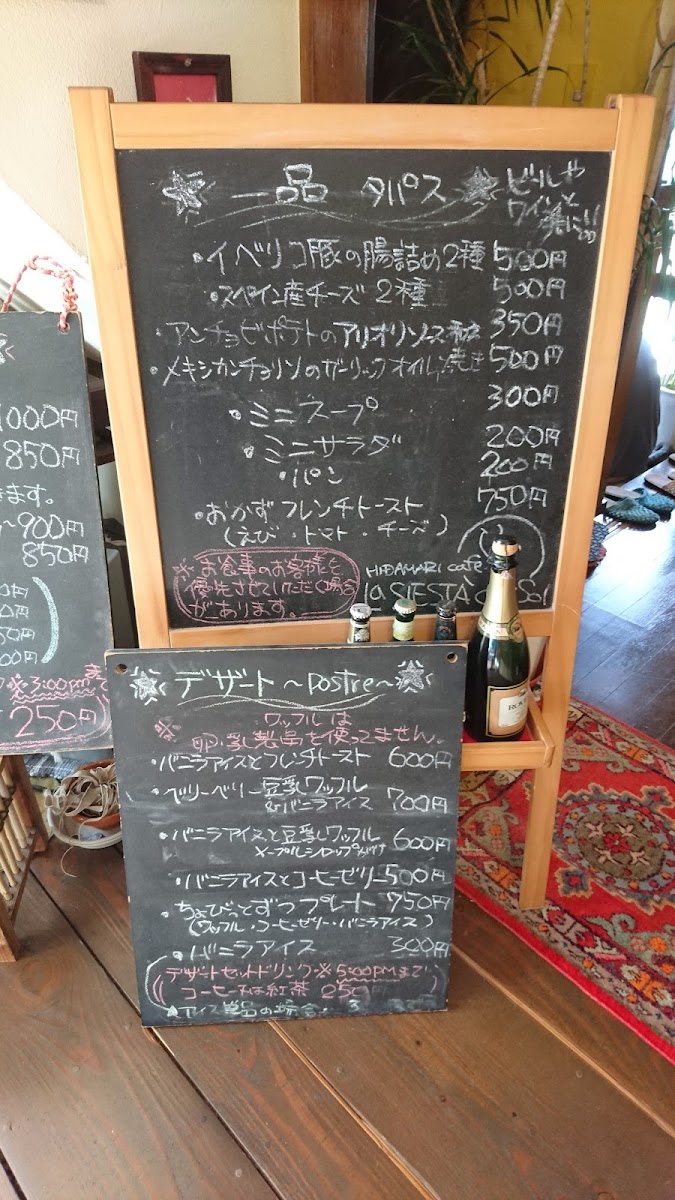 一品 タパス
ビールや
ワインと
・イベリコ豚の腸詰め2種 500円
・スペイン産チーズ2種 500円
・アンチョビポテトのアリオリソース 350円
・メキシカンチョリソのガーリックオイル焼き 500円
・ミニスープ 300円
・ミニサラダ 200円
・パン 200円
・おかずフレンチトースト 750円
(えび・トマト・チーズ)
※お食事のお客様を
優先させていただく場合
があります。
HIDAMARI café
la SIESTA del Sol
1000円
850円
きます。
~900円
850円
0円
0円
50円
00円
※3:00pmま
250円
デザート~Postre~
※ワッフルは
卵・乳製品を使ってません。
・バニラアイスとフレンチトースト 600円
・ベリーベリー豆乳ワッフル
&バニラアイス 700円
・バニラアイスと豆乳ワッフル 600円
メープルシロップがけ
・バニラアイスとコーヒーゼリー 500円
・ちょびっとずつプレート 750円
(ワッフル・コーヒーゼリー・バニラアイス)
・バニラアイス 300円
デザートセットドリンク※5:00PMまで
コーヒー又は紅茶 250